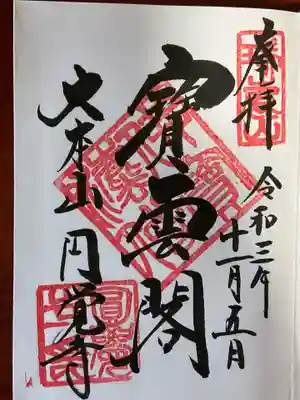 奉拝
令和三年
十一月五日
寳雲閣
大本山円覚寺